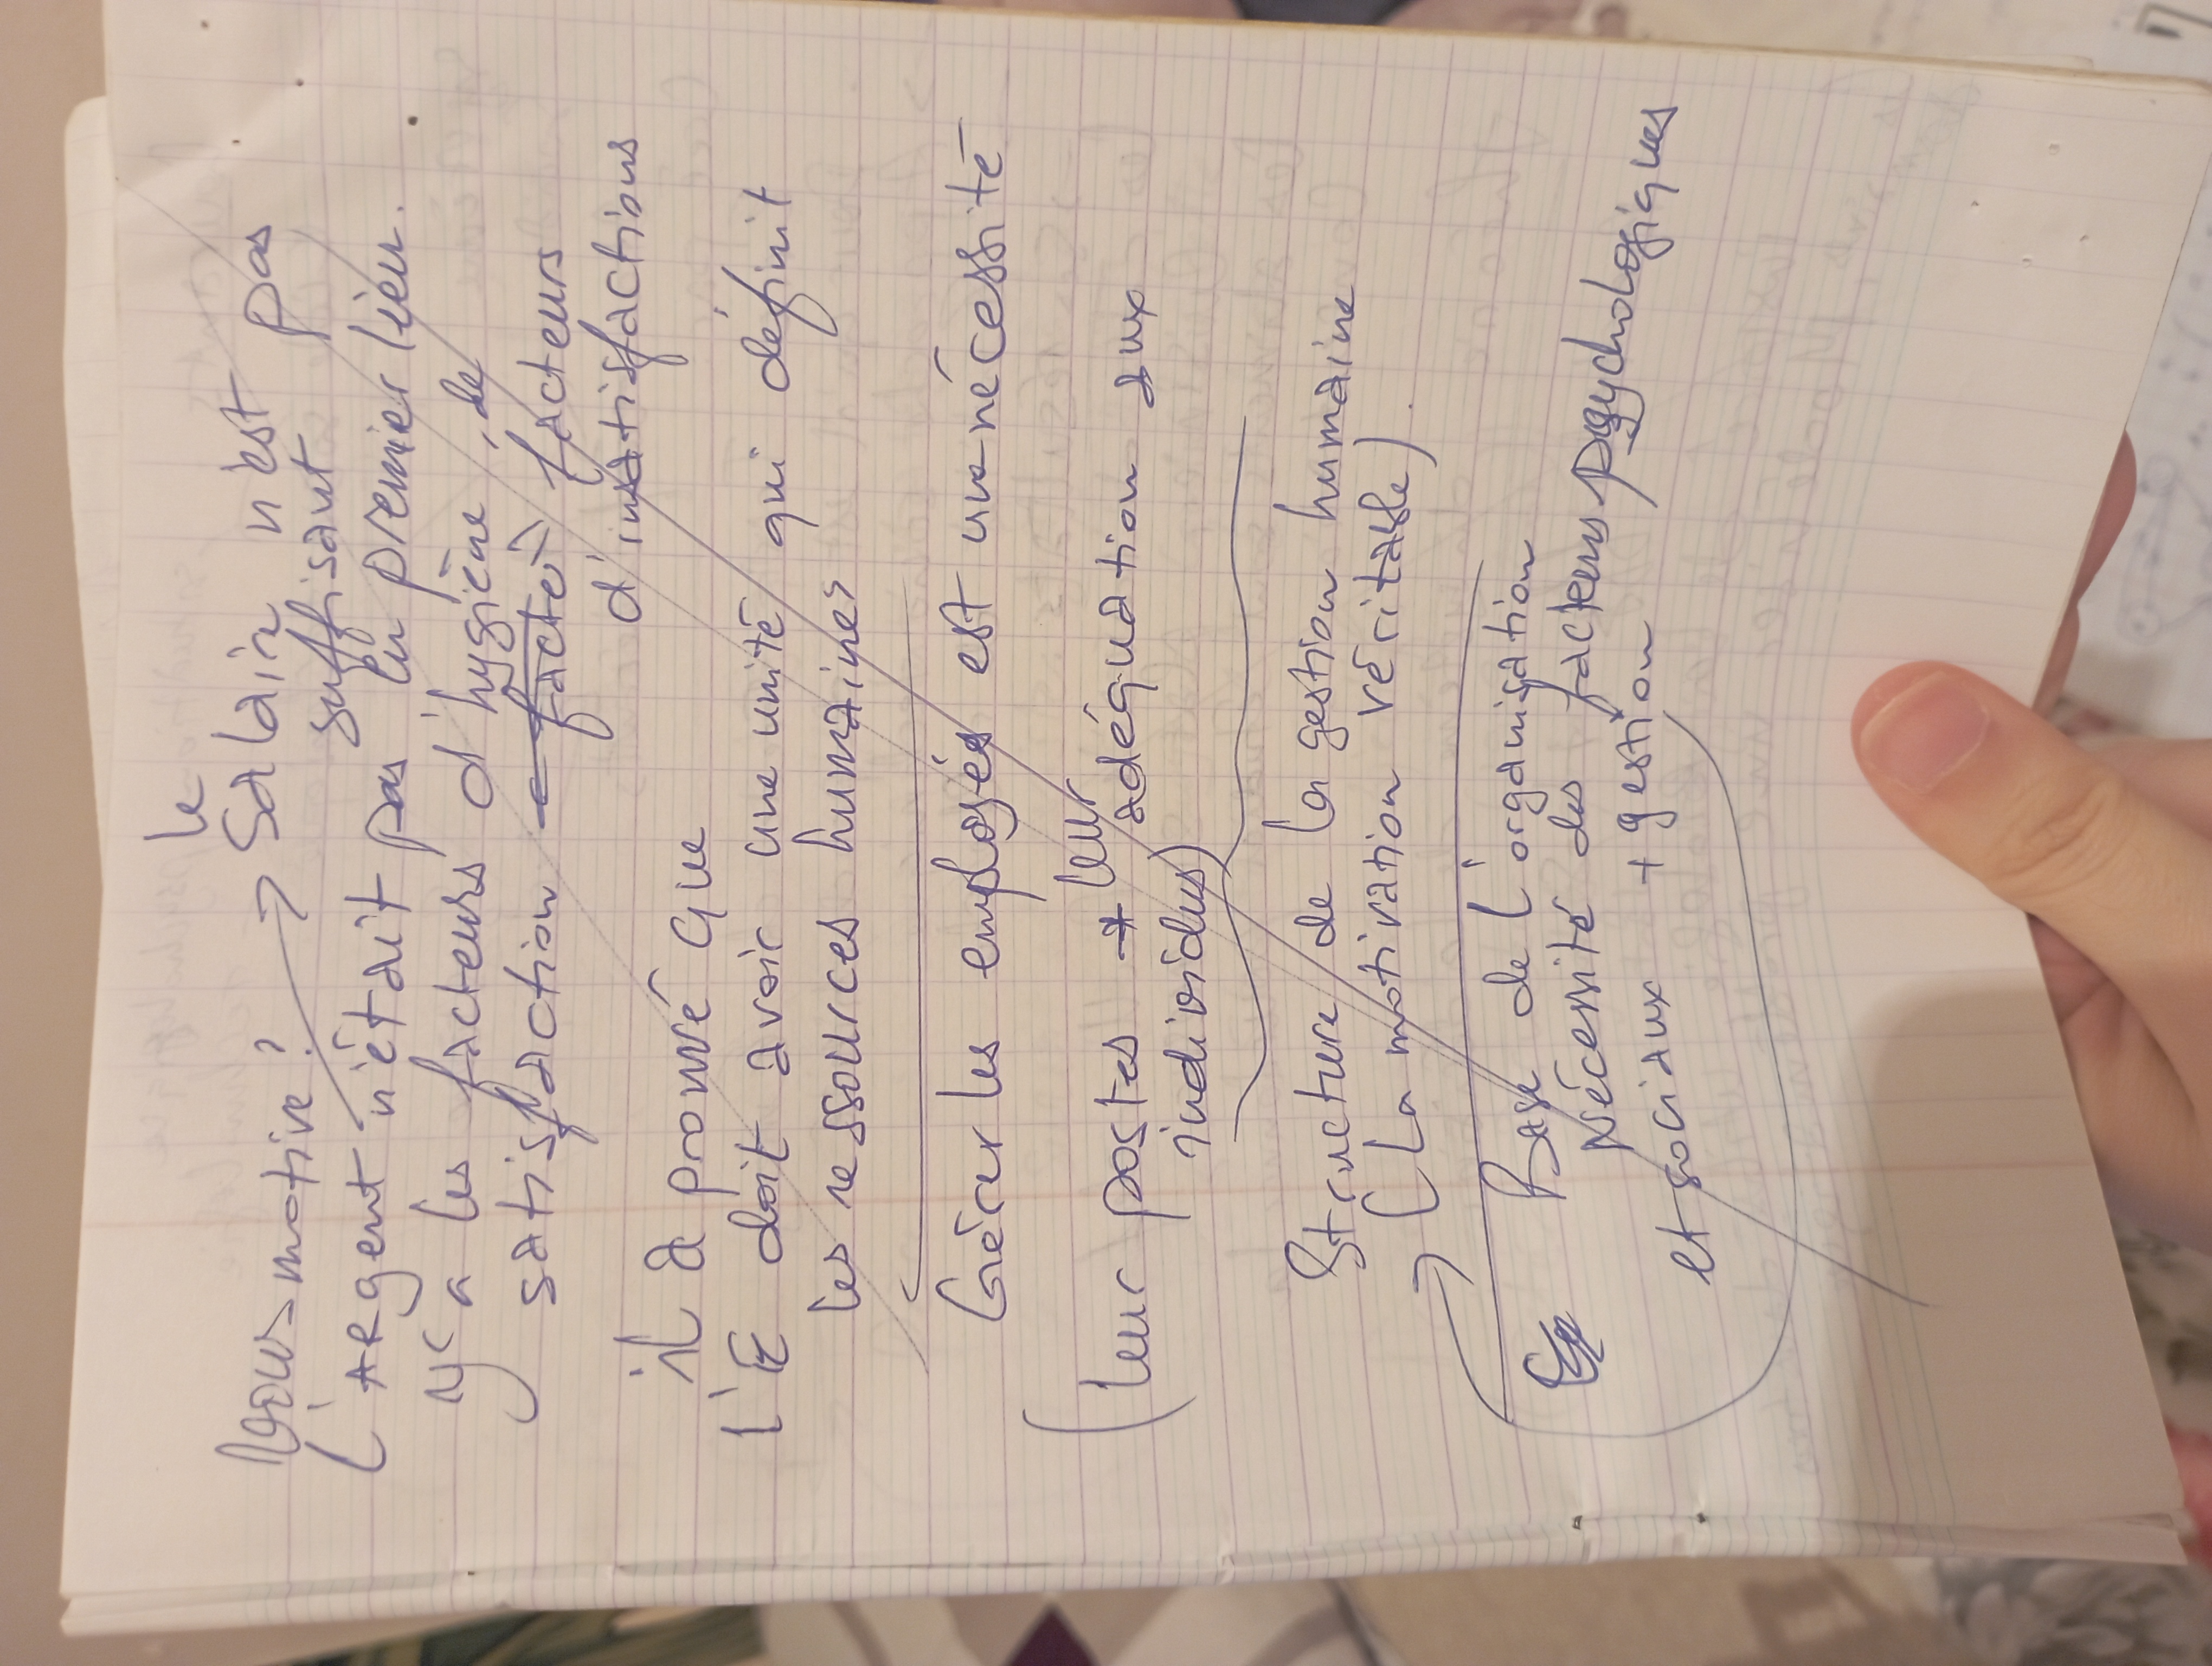 le
Vous motive? → Salair n'est pas
suffisant
L'ARgent n'était pas en premier lieu.
y'a les facteurs d'hygiène, de
satisfaction facteurs
d'insatisfactions
il a prouvé que
l'E doit avoir une unité qui définit
les ressources humaines
Gérer les employés est une nécessité
(leur postes leur adéquation aux
individus)
Structure de la gestion humaine
(La motivation véritable).
Base de l'organisation
Nécessité des facteurs psychologiques
et sociaux + gestion